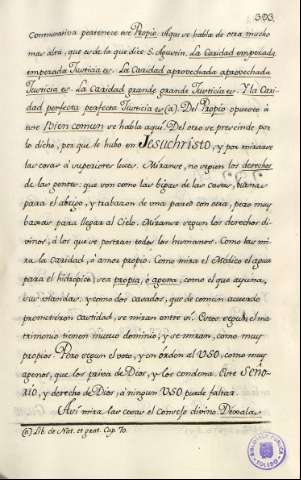 303.
Commutativa pertenece ese Propio. Aqui se habla de otra mucho
mas alta, que es de la que dice S. Agustin, La Caridad empezada
empezada Justicia es: La Caridad aprovechada aprovechada
Justicia es: La Caridad grande grande Justicia es: Y la Cari-
dad perfecta perfecta Justicia es (a). Del Propio opuesto á
este Bien comun se habla aqui. Del otro se prescinde por
lo dicho, por que le hubo en Jesuchristo, y por mirarse
las cosas á superiores luces. Miranse, no segun los derechos
de las gentes: que son como las bigas de las casas, buenas
para el abrigo, y trabazon de una pared con otra, pero muy
baxas para llegar al Cielo. Miranse segun los derechos di-
vinos, á los que se postran todos los humanos. Como las mi-
ra la caridad, ó amor propio. Como mira el Medico el agua
para el hidropico, sea propia, ó agena, como el que ayuna,
sus comidas: y como dos casados, que de comun acuerdo
prometieron castidad, se miran entre sí. Estos segun el ma-
trimonio tienen mutuo dominio, y se miran, como muy
propios. Pero segun el voto, y en órden al USO, como muy
agenos, que los priva de Dios, y los condena. Este Seño-
río, y derecho de Dios, á ningun USO puede faltar.
Asi mira las cosas el consejo divino: Dexala
(a) Lib. de Nat. et grat. Cap. 70.
BIBLIOTECA PUBLICA
TOLEDO